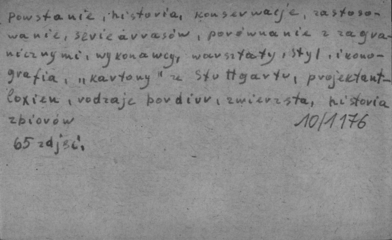 powstanie, historia, konserwacje, zastoso-
wanie, serie arrasów, porównanie z zagra-
nicznymi, wykonawcy, warsztaty, styl, ikono-
grafia, "kartony" ze Stuttgartu, projektant-
Coxien, rodzaje bordiur, zwierzęta, historia
zbiorów 10/1176
65 zdjęć.